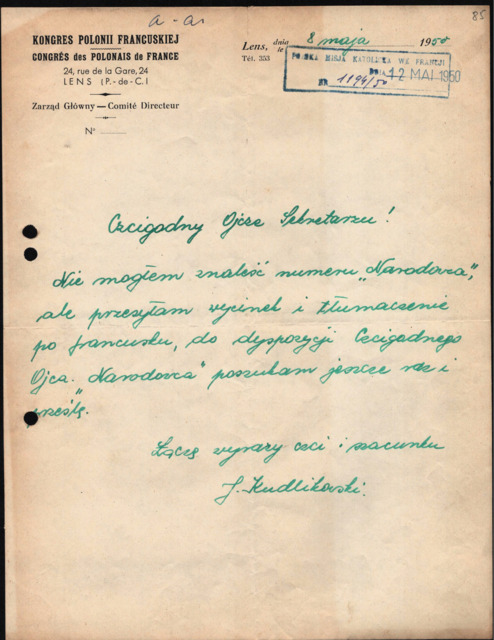 a-a.
85
KONGRES POLONII FRANCUSKIEJ
CONGRÈS des POLONAIS de FRANCE
24, rue de la Gare, 24
LENS (P.-de-C.)
Zarząd Główny — Comité Directeur
N°
Lens, dnia le 8 maja 1950
Tél. 253
POLSKA MISJA KATOLICKA WE FRANCJI
DNIA 12 MAI 1950
NR 1194/50
Czcigodny Ojcze Sekretarzu!
Nie mogłem znaleść numeru „Narodovca",
ale przesyłam wycinek i tłumaczenie
po francusku, do dyspozycji Czcigodnego
Ojca. „Narodovca" poszukam jeszcze raz i
prześlę.
Łączę wyrazy czci i szacunku
J. Kudlikowski.